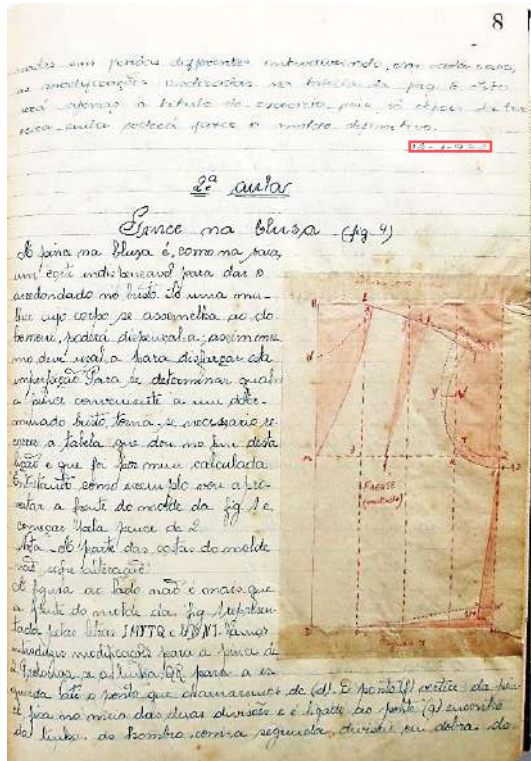 8
em differentes introduzindo, em cada caso,
as modificações indicadas na tabela da pag. 6 Isto
será apenas a titulo de exercicio, pois só depois da
aula poderá fazer o molde definitivo.
2ª aula
Pence na blusa (fig 4)
A pence na blusa é, como na saia,
um corte indispensavel para dar o
arredondado no busto. Só uma mu-
lher cujo corpo se assemelha ao do
homem, poderá dispensal-a; assim mes
mo deve usal-a para disfarçar esta
imperfeição. Para se determinar qual
a pence conveniente a um deter-
minado busto, torna-se necessario re-
correr a tabela que dou no fim desta
lição e que foi por mim calculada.
Entretanto como exemplo vou apro-
veitar a frente do molde da fig 1 e,
começar pela pence de 2.
Nota - A parte das costas do molde
não sofre alteração.
A figura ao lado não é mais que
a frente do molde da fig 1 represen-
tada pelas letras Vamos
introduzir modificações para a pence de
2 a linha QR para a es
querda até o ponto que chamaremos de (d). O ponto (f) vertice da
fica no meio das duas divisões e é ligado ao ponto (g) encontro
da linha do hombro com a segunda divisão ou dobra do
FRENTE
(metade)
Figura 4